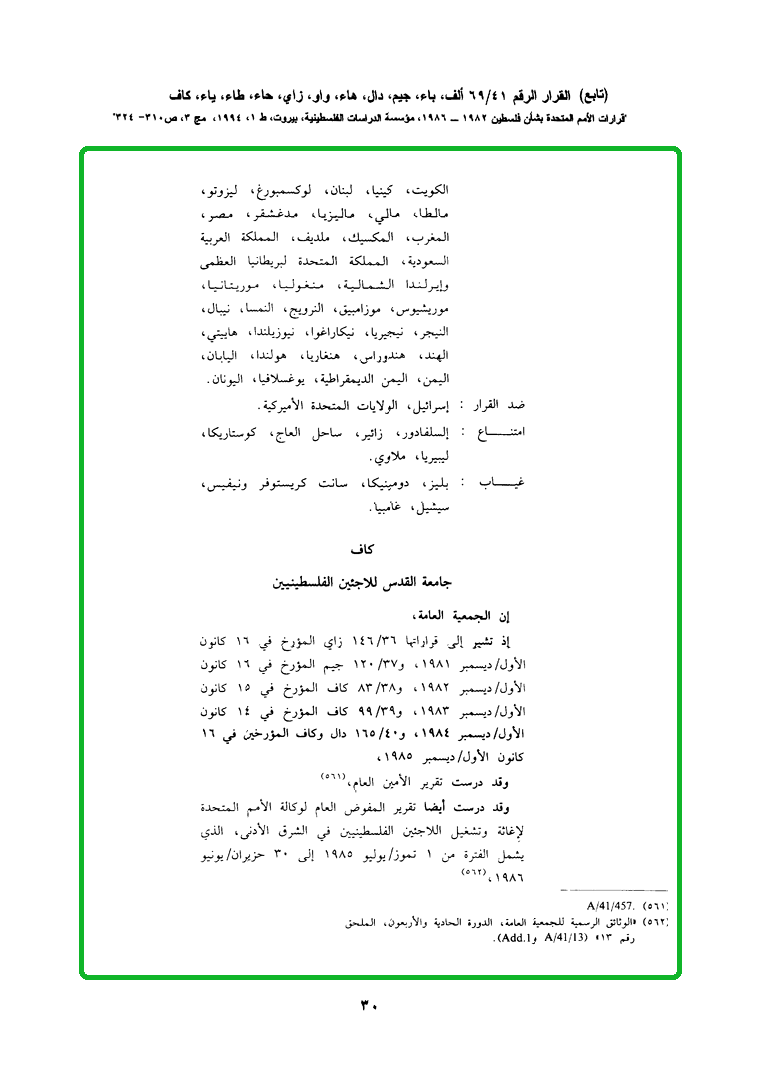 (تابع) القرار الرقم ٦٩/٤١ ألف، باء، جيم، دال، هاء، واو، زاي، حاء، طاء، ياء، كاف
"قرارات الأمم المتحدة بشأن فلسطين ١٩٨٢ — ١٩٨٦، مؤسسة الدراسات الفلسطينية، بيروت، ط ١، ١٩٩٤، مج ٣، ص٣١٠- ٣٢٤"
الكويت، كينيا، لبنان، لوكسمبورغ، ليزوتو،
مالطا، مالي، ماليزيا، مدغشقر، مصر،
المغرب، المكسيك، ملديف، المملكة العربية
السعودية، المملكة المتحدة لبريطانيا العظمى
وإيرلندا الشمالية، منغوليا، موريتانيا،
موريشيوس، موزامبيق، النرويج، النمسا، نيبال،
النيجر، نيجيريا، نيكاراغوا، نيوزيلندا، هاييتي،
الهند، هندوراس، هنغاريا، هولندا، اليابان،
اليمن، اليمن الديمقراطية، يوغسلافيا، اليونان.
ضد القرار : إسرائيل، الولايات المتحدة الأميركية.
امتنـــاع : إلسلفادور، زائير، ساحل العاج، كوستاريكا،
ليبيريا، ملاوي.
غيـــاب : بليز، دومينيكا، سانت كريستوفر ونيفيس،
سيشيل، غامبيا.
كاف
جامعة القدس للاجئين الفلسطينيين
إن الجمعية العامة،
إذ تشير إلى قراراتها ١٤٦/٣٦ زاي المؤرخ في ١٦ كانون
الأول/ديسمبر ١٩٨١، و١٢٠/٣٧ جيم المؤرخ في ١٦ كانون
الأول/ديسمبر ١٩٨٢، و٨٣/٣٨ كاف المؤرخ في ١٥ كانون
الأول/ديسمبر ١٩٨٣، و٩٩/٣٩ كاف المؤرخ في ١٤ كانون
الأول/ديسمبر ١٩٨٤، و١٦٥/٤٠ دال وكاف المؤرخين في ١٦
كانون الأول/ديسمبر ١٩٨٥،
وقد درست تقرير الأمين العام،(٥٦١)
وقد درست أيضا تقرير المفوض العام لوكالة الأمم المتحدة
لإغاثة وتشغيل اللاجئين الفلسطينيين في الشرق الأدنى، الذي
يشمل الفترة من ١ تموز/يوليو ١٩٨٥ إلى ٣٠ حزيران/يونيو
١٩٨٦،(٥٦٢)
(٥٦١) A/41/457.
(٥٦٢) «الوثائق الرسمية للجمعية العامة، الدورة الحادية والأربعون، الملحق
رقم ١٣» (A/41/13 وAdd.1).
٣٠